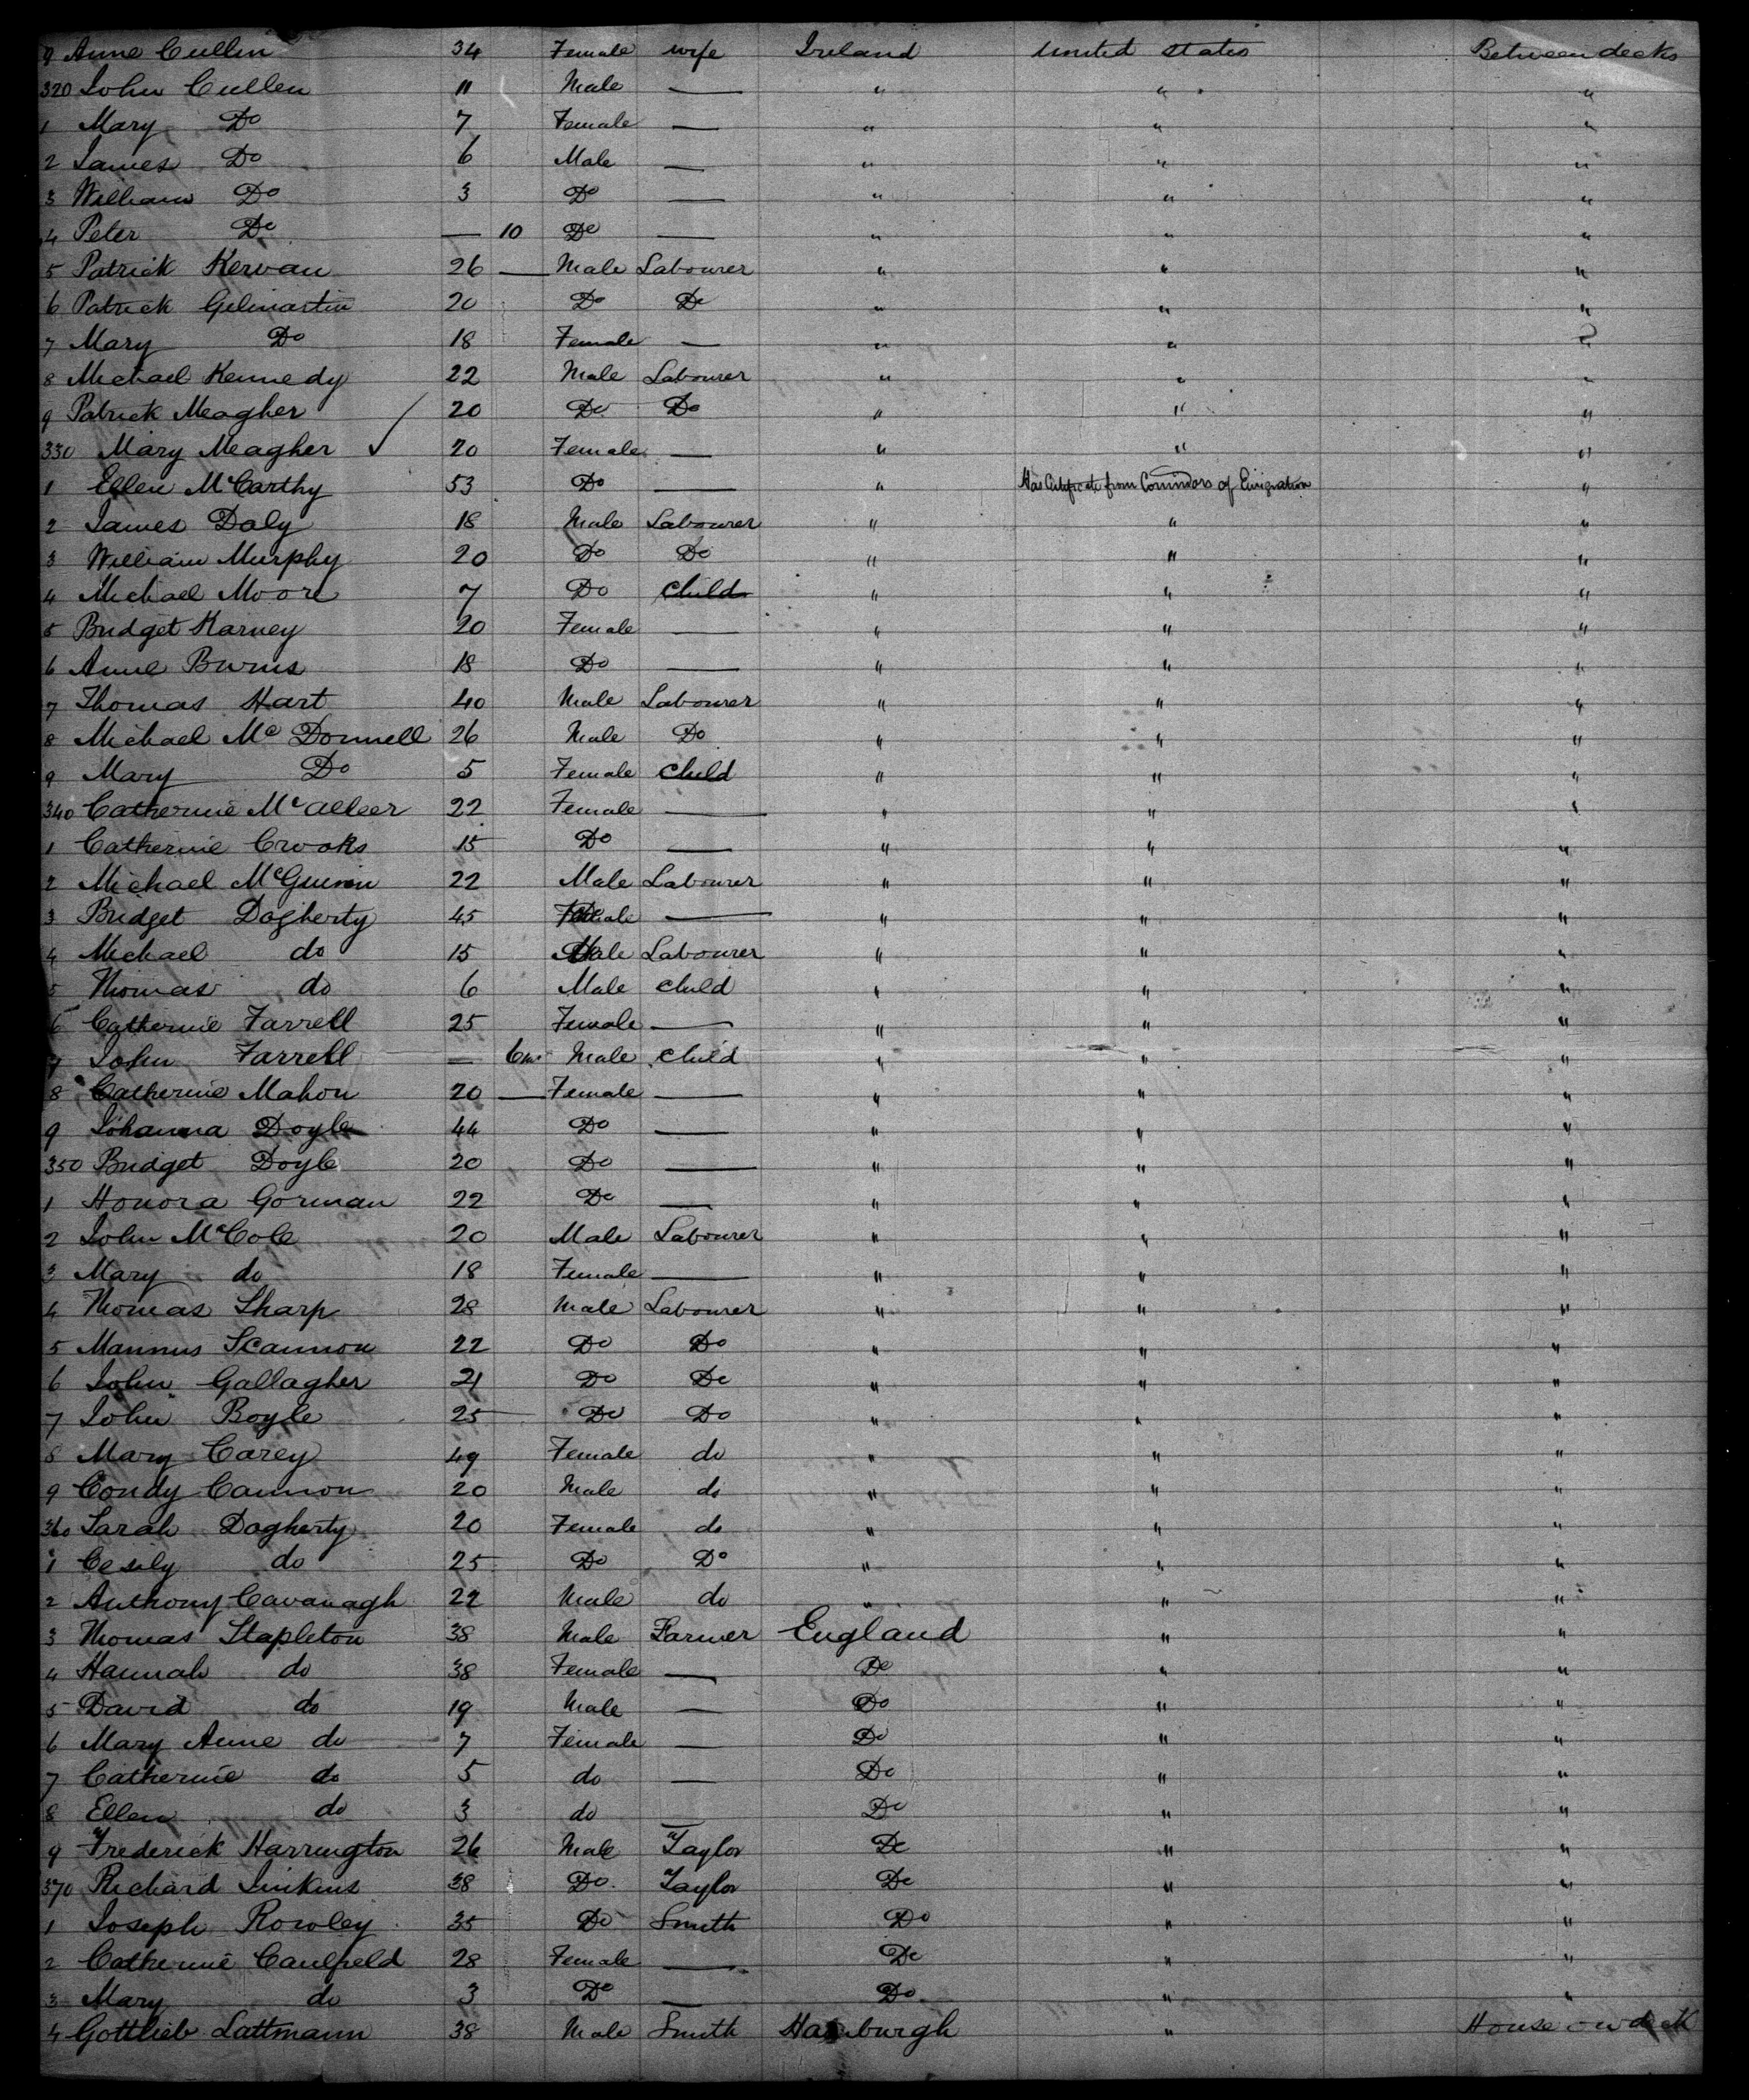 9 Anne Cullin 34 Female wife Ireland United States Between decks
320 John Cullen 11 Male — " " "
1 Mary Do 7 Female — " " "
2 James Do 6 Male — " " "
3 William Do 3 Do — " " "
4 Peter Do — 10 Do — " " "
5 Patrick Kervan 26 — Male Labourer " " "
6 Patrick Gilmartin 20 Do Do " " "
7 Mary Do 18 Female — " " "
8 Michael Kennedy 22 Male Labourer " " "
9 Patrick Meagher 20 Do Do " " "
330 Mary Meagher ✓ 20 Female — " " "
1 Ellen McCarthy 53 Do — " Has Certificate from Commrs of Emigration "
2 James Daly 18 Male Labourer " " "
3 William Murphy 20 Do Do " " "
4 Michael Moore 7 Do Child " " "
5 Bridget Harney 20 Female — " " "
6 Anne Burns 18 Do — " " "
7 Thomas Hart 40 Male Labourer " " "
8 Michael Mc Donnell 26 Male Do " " "
9 Mary Do 5 Female Child " " "
340 Catherine McAleer 22 Female — " " "
1 Catherine Crooks 15 Do — " " "
2 Michael McGuinn 22 Male Labourer " " "
3 Bridget Dogherty 45 Female — " " "
4 Michael do 15 Male Labourer " " "
5 Thomas do 6 Male child " " "
6 Catherine Farrell 25 Female — " " "
7 John Farrell — 6m Male child " " "
8 Catherine Mahon 20 — Female — " " "
9 Johanna Doyle 44 Do — " " "
350 Bridget Doyle 20 Do — " " "
1 Honora Gorman 22 Do — " " "
2 John McCole 20 Male Labourer " " "
3 Mary do 18 Female — " " "
4 Thomas Sharp 28 Male Labourer " " "
5 Mannus Scannon 22 Do Do " " "
6 John Gallagher 21 Do Do " " "
7 John Boyle 25 Do Do " " "
8 Mary Carey 49 Female do " " "
9 Condy Cannon 20 Male do " " "
360 Sarah Dogherty 20 Female do " " "
1 Cesily do 25 Do Do " " "
2 Anthony Cavanagh 22 Male do " " "
3 Thomas Stapleton 38 Male Farmer England " "
4 Hannah do 38 Female — Do " "
5 David do 19 Male — Do " "
6 Mary Anne do 7 Female — Do " "
7 Catherine do 5 do — Do " "
8 Ellen do 3 do — Do " "
9 Frederick Harrington 26 Male Taylor Do " "
370 Richard Jinkins 38 Do Taylor Do " "
1 Joseph Rowley 35 Do Smith Do " "
2 Catherine Caulfield 28 Female — Do " "
3 Mary do 3 Do — Do " "
4 Gottlieb Lattmann 38 Male Smith Hamburgh " House on deck